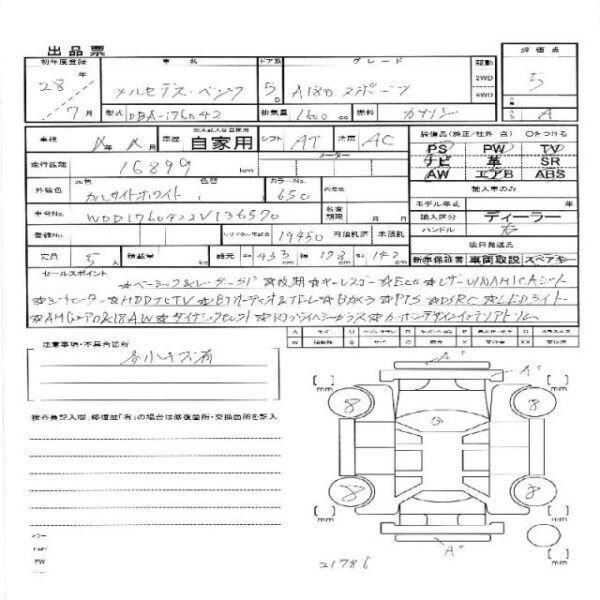 出品票
初年度登録 車名 ドア数 グレード 駆動 評価点
28年 メルセデス・ベンツ 5D A180 スポーツ 2WD 4WD 5
7月 型式 DBA-176042 排気量 1600 cc 燃料 ガソリン A
車検 月 車歴 自家用 シフト AT 冷房 AC 装備品(純正/社外 含) ○をつける
PS PW TV
走行距離 16899 km メーター ナビ 革 SR
AW エアB ABS
外装色 元色 カルサイトホワイト 色替 カラーNo. 650 内装色 輸入車のみ
モデル年式 年
車台No. WDD1760422V136570 名変期限 月 日 輸入区分 ディーラー
ハンドル 右
登録No. リサイクル預託金 19450 円 後日発送品
定員 5人 積載量 諸元 433 cm 178 cm 142 cm 新車保証書 車両取説 スペアキー
セールスポイント
★ベーシック&レーダーSP ★キーレスゴー ★ECO ★レザーDINAMICAシート
★シートヒーター ★HDDナビTV ★BTオーディオ&TEL ★Bカメラ ★PTS ★DSRC ★LEDライト
★AMGエアロ&18AW ★ダイナミックセレクト ★プライバシーガラス ★カーボンデザインインテリアトリム
注意事項・不具合箇所
小キズ有
検査員記入欄:修復歴「有」の場合は修復箇所・交換箇所を記入
A" A"
8 G 8
8 8
A"
mm mm
mm mm mm
カラー
PW
21786